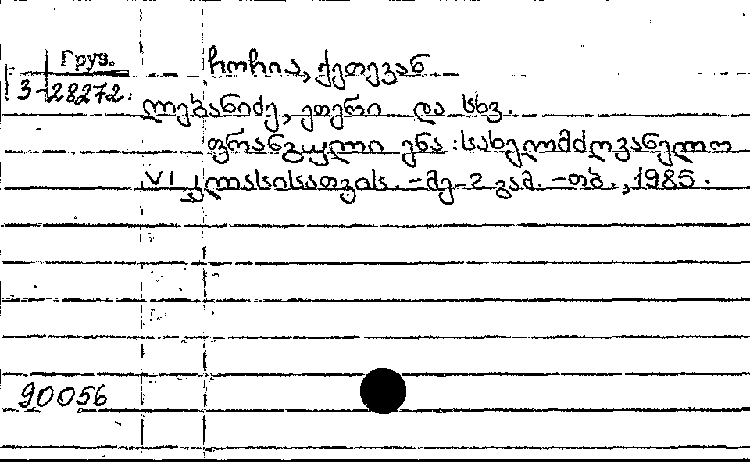 Груз.
3-28272.
ჩოჩია, ქეთევან
ლებანიძე, ეთერი და სხვ.
ფრანგული ენა : სახელმძღვანელო
VI კლასისათვის. - მე-2 გამ. - თბ., 1985.
90056